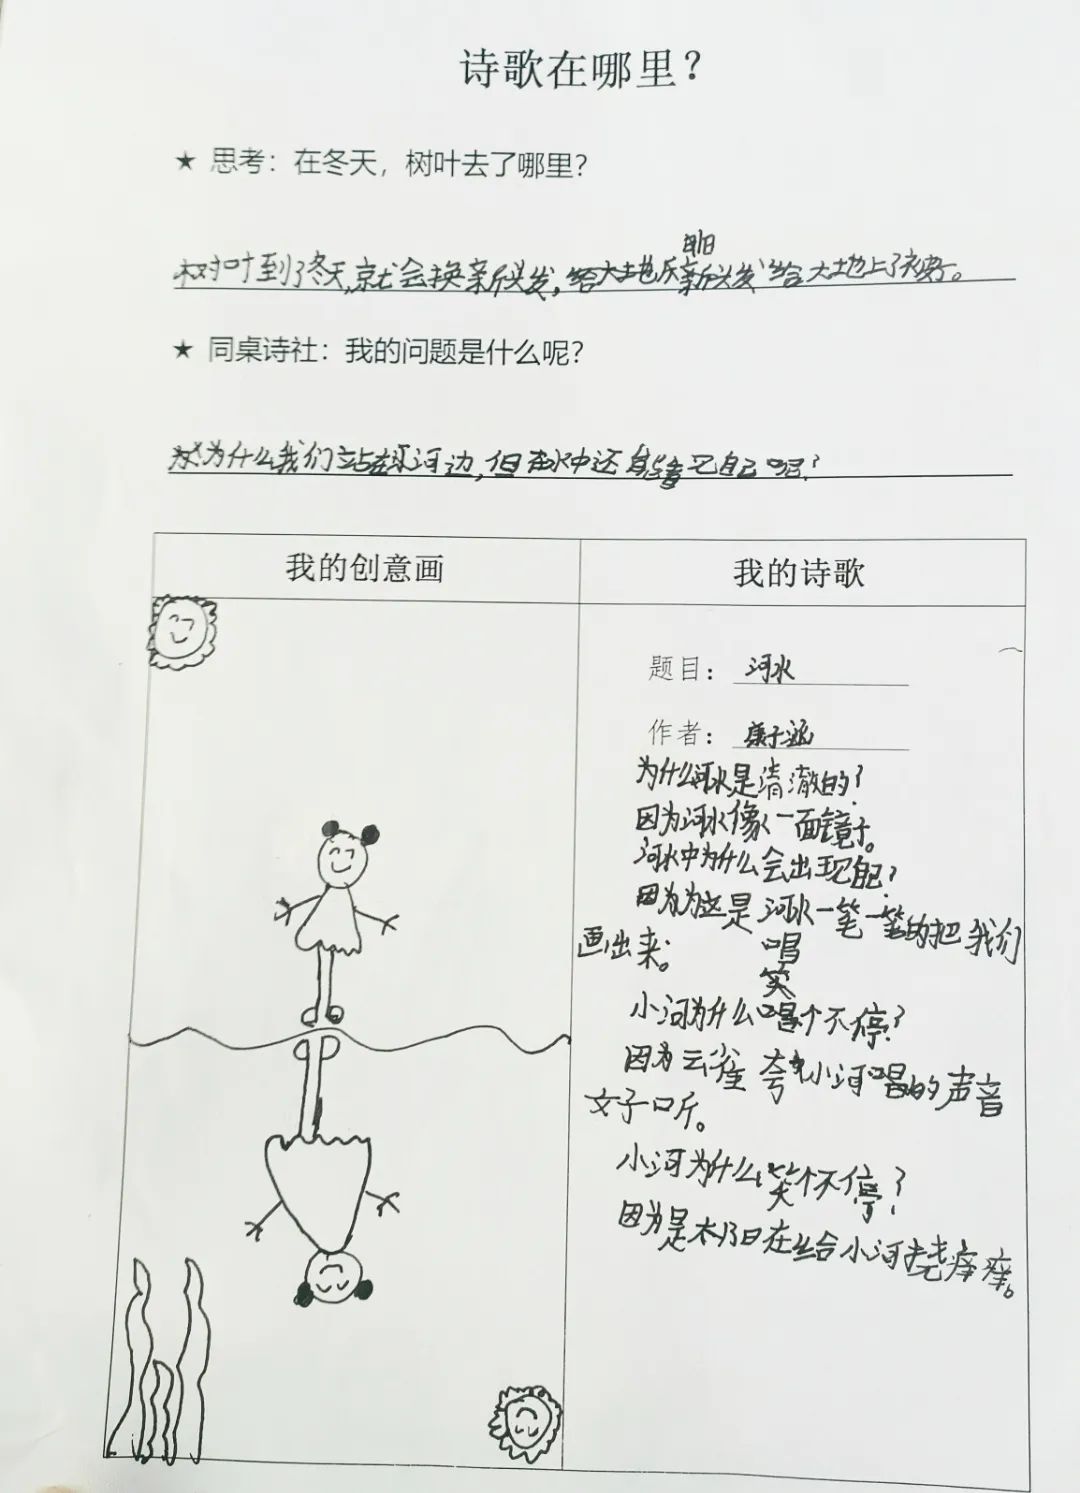 诗歌在哪里？
★ 思考：在冬天，树叶去了哪里？
树叶到了冬天，就会换新头发，给大地
新头发给大地上了衣裳。
★ 同桌诗社：我的问题是什么呢？
为什么我们站在河边，但在水中还能看见自己呢？
我的创意画
我的诗歌
题目：河水
作者：康子涵
为什么河水是清澈的？
因为河水像一面镜子。
河水中为什么会出现自己？
因为这是河水一笔一笔的把我们
画出来。
唱
笑
小河为什么唱个不停？
因为云雀夸小河唱的声音
好听。
小河为什么笑个不停？
因为是太阳在给小河挠痒痒。